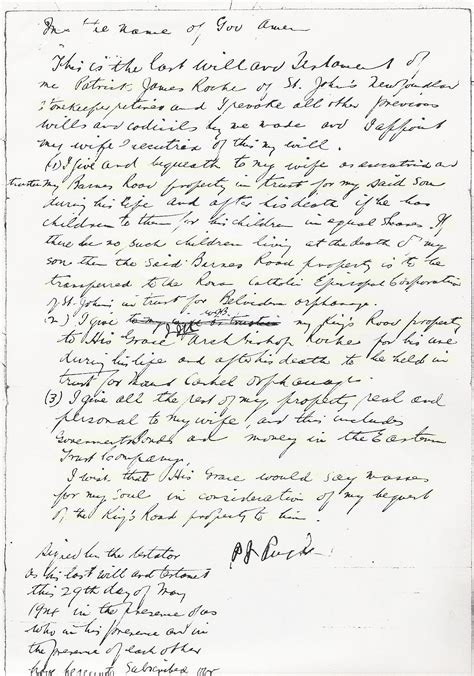 In the name of God Amen
This is the last will and Testament of
me Patrick James Roche of St. John's Newfoundland
storekeeper retired and I revoke all other previous
wills and codicils by me made and I appoint
my wife Executrix of this my will.
(1) I give and bequeath to my wife as executrix and
trustee my Barnes Road property in trust for my said son
during his life and after his death if he has
children to them for his children in equal shares. If
there be no such children living at the death of my
son then the said Barnes Road property is to be
transferred to the Roman Catholic Episcopal Corporation
of St. John's in trust for Belvidere orphanage.
(2) I give to my wife my King's Road property
to His Grace Archbishop Roche for his use
during his life and after his death to be held in
trust for Mount Cashel Orphanage.
(3) I give all the rest of my property real and
personal to my wife, and this includes
Government bonds and money in the Eastern
Trust Company.
I wish that His Grace would say masses
for my soul in consideration of my bequest
of the King's Road property to him.
Signed by the testator
as his last will and testament
this 29th day of May
in the presence of us
who in his presence and in
the presence of each other
have hereunto subscribed our